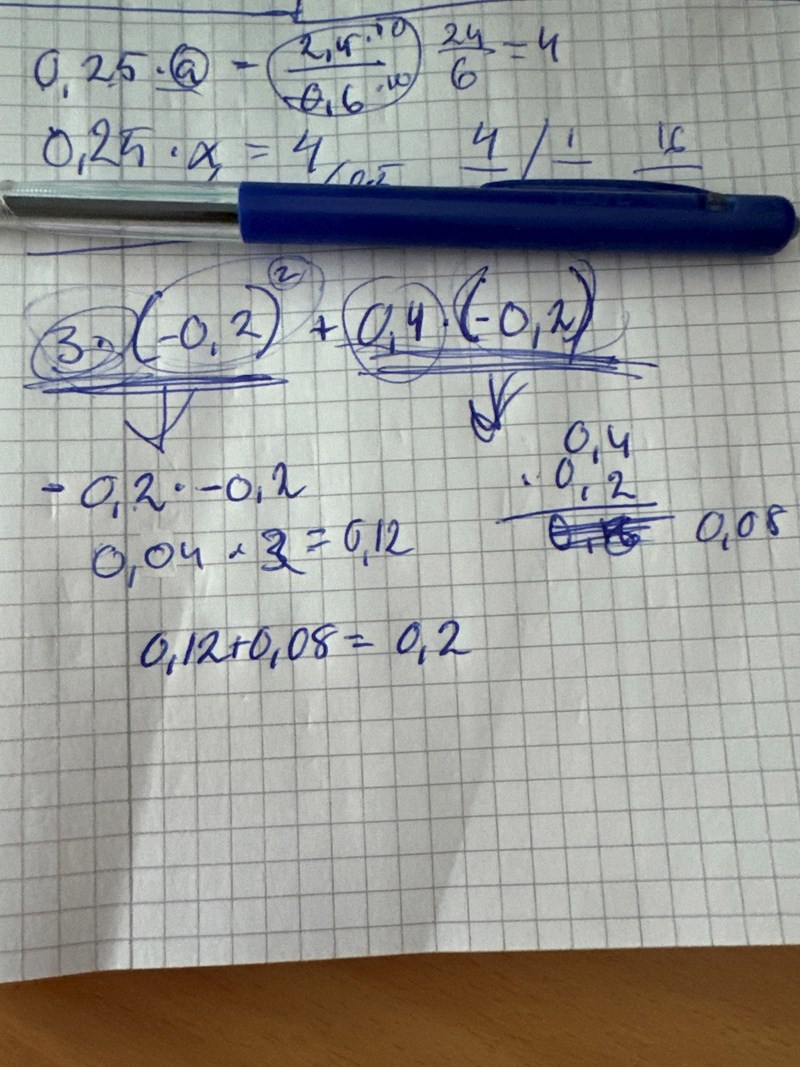 0,25 · a = 2,4·10 / 0,6·10 24/6 = 4
0,25 · x = 4 4 / 1 16
3·(-0,2)² + 0,4·(-0,2)
- 0,2 · -0,2
0,4
· 0,2
0,04 · 3 = 0,12
0,08
0,12+0,08 = 0,2